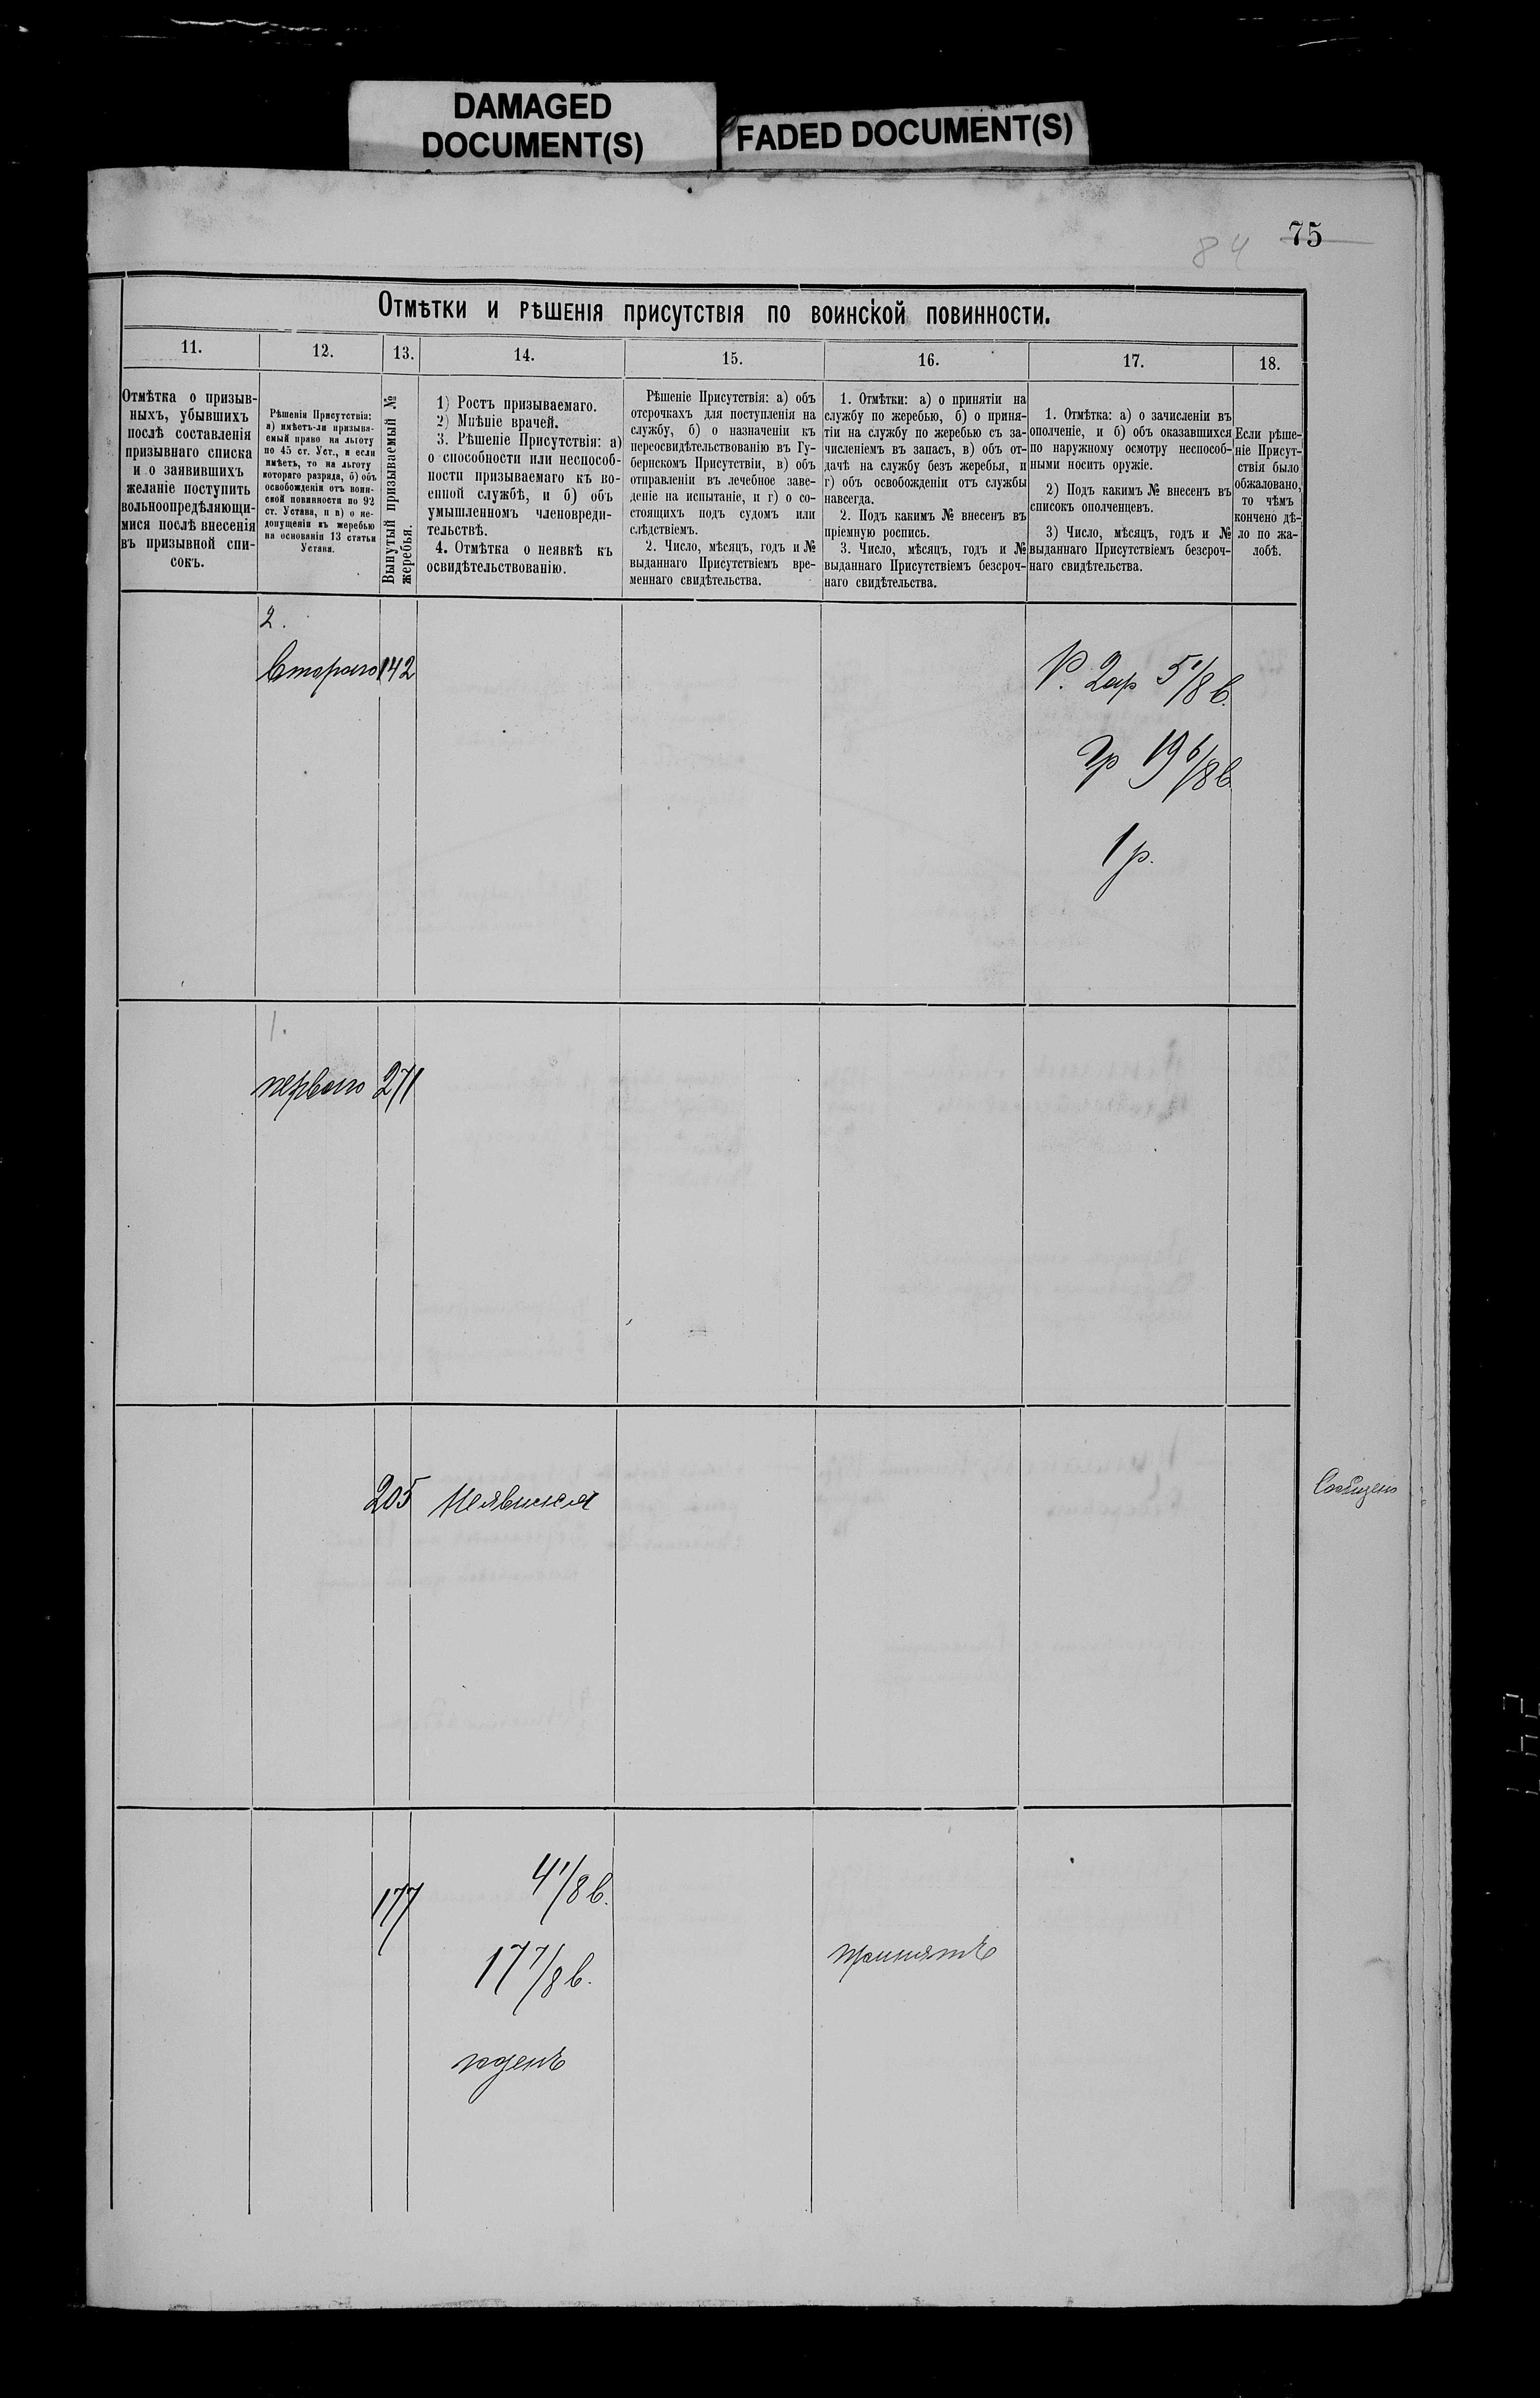 DAMAGED
DOCUMENT(S)
FADED DOCUMENT(S)
84 75
Отмѣтки и рѣшенія присутствія по воинской повинности.
11.
12.
13.
14.
15.
16.
17.
18.
Отмѣтка о призыв-
ныхъ, убывшихъ
послѣ составленія
призывнаго списка
и о заявившихъ
желаніе поступить
вольноопредѣляющи-
мися послѣ внесенія
въ призывной спи-
сокъ.
Рѣшенія Присутствія:
а) имѣетъ-ли призыва-
емый право на льготу
по 45 ст. Уст., и если
имѣетъ, то на льготу
котораго разряда, б) объ
освобожденіи отъ воин-
ской повинности по 92
ст. Устава, и в) о не-
допущеніи къ жеребью
на основаніи 13 статьи
Устава.
Вынутый призываемый №
жеребья.
1) Ростъ призываемаго.
2) Мнѣніе врачей.
3. Рѣшеніе Присутствія: а)
о способности или неспособ-
ности призываемаго къ во-
енной службѣ, и б) объ
умышленномъ членовреди-
тельствѣ.
4. Отмѣтка о неявкѣ къ
освидѣтельствованію.
Рѣшеніе Присутствія: а) объ
отсрочкахъ для поступленія на
службу, б) о назначеніи къ
переосвидѣтельствованію въ Гу-
бернскомъ Присутствіи, в) объ
отправленіи въ лечебное заве-
деніе на испытаніе, и г) о со-
стоящихъ подъ судомъ или
слѣдствіемъ.
2. Число, мѣсяцъ, годъ и №
выданнаго Присутствіемъ вре-
меннаго свидѣтельства.
1. Отмѣтки: а) о принятіи на
службу по жеребью, б) о приня-
тіи на службу по жеребью съ за-
численіемъ въ запасъ, в) объ от-
дачѣ на службу безъ жеребья, и
г) объ освобожденіи отъ службы
навсегда.
2. Подъ какимъ № внесенъ въ
пріемную роспись.
3. Число, мѣсяцъ, годъ и №
выданнаго Присутствіемъ безсроч-
наго свидѣтельства.
1. Отмѣтка: а) о зачисленіи въ
ополченіе, и б) объ оказавшихся
по наружному осмотру неспособ-
ными носить оружіе.
2) Подъ какимъ № внесенъ въ
списокъ ополченцевъ.
3) Число, мѣсяцъ, годъ и №
выданнаго Присутствіемъ безсроч-
наго свидѣтельства.
Если рѣше-
ніе Присут-
ствія было
обжаловано,
то чѣмъ
кончено дѣ-
ло по жа-
лобѣ.
2.
Втораго 142
Р. 2ар 5 1/8 в.
Гр 19 6/8 в
1 р.
1.
перваго 271
205 Неявился
Сообщено
177
4 1/8 в.
17 7/8 в.
принятъ
годенъ